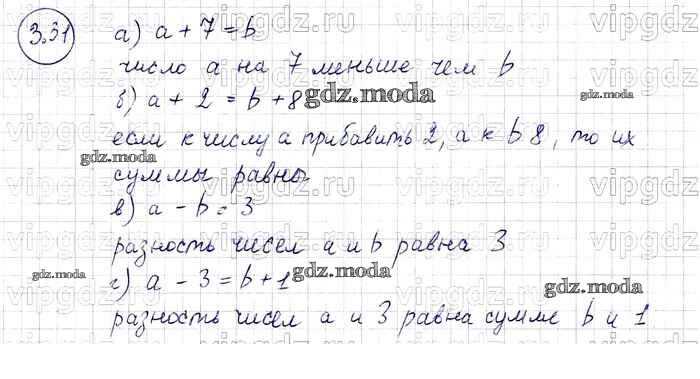 3.31
а) a + 7 = b
число a на 7 меньше чем b
б) a + 2 = b + 8
если к числу a прибавить 2, а к b 8, то их
суммы равны
в) a - b = 3
разность чисел a и b равна 3
г) a - 3 = b + 1
разность чисел a и 3 равна сумме b и 1
gdz.moda
gdz.moda
gdz.moda
gdz.moda
gdz.moda
vipgdz.ru